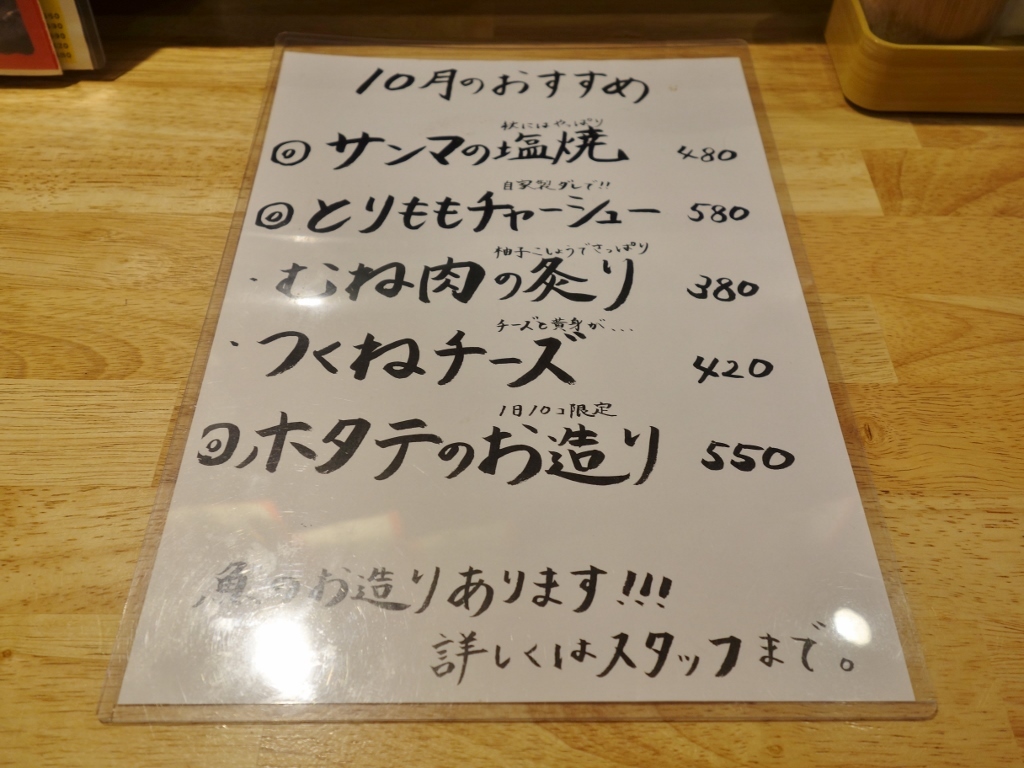 10月のおすすめ
秋にはやっぱり
◎サンマの塩焼 480
自家製ダレで!!
◎とりももチャーシュー 580
柚子こしょうでさっぱり
・むね肉の炙り 380
チーズと黄身が...
・つくねチーズ 420
1日10コ限定
◎ホタテのお造り 550
魚のお造りあります!!!
詳しくはスタッフまで。